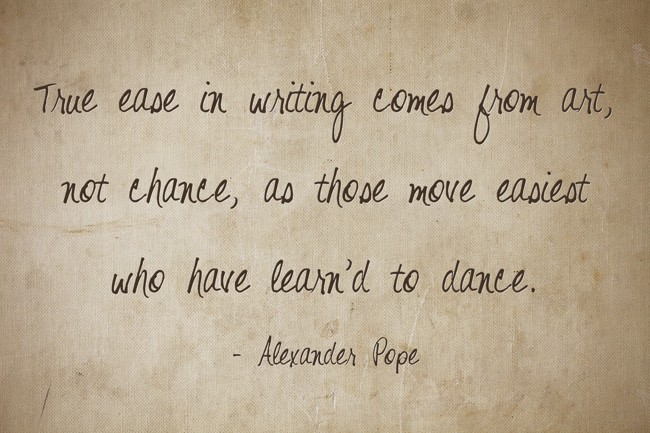 True ease in writing comes from art,
not chance, as those move easiest
who have learn'd to dance.
- Alexander Pope